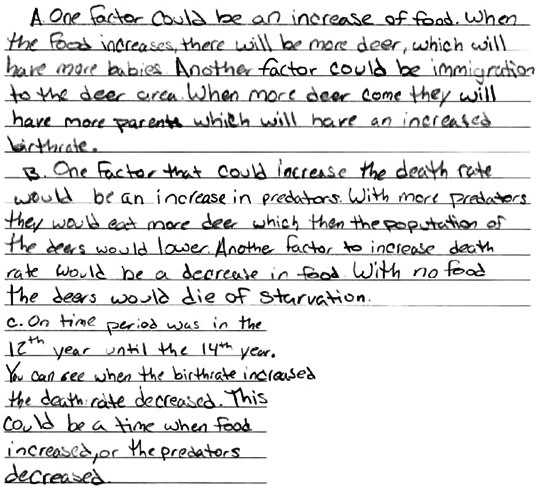 A. One factor could be an increase of food. When
the food increases, there will be more deer, which will
have more babies. Another factor could be immigration
to the deer area. When more deer come they will
have more parents which will have an increased
birthrate.
B. One factor that could increase the death rate
would be an increase in predators. With more predators
they would eat more deer which then the population of
the deers would lower. Anothe factor to increase death
rate would be a decrease in food. With no food
the deers would die of starvation.
C. On time period was in the
12th year until the 14th year.
You can see when the birthrate increased
the death rate decreased. This
could be a time when food
increased, or the predators
decreased.